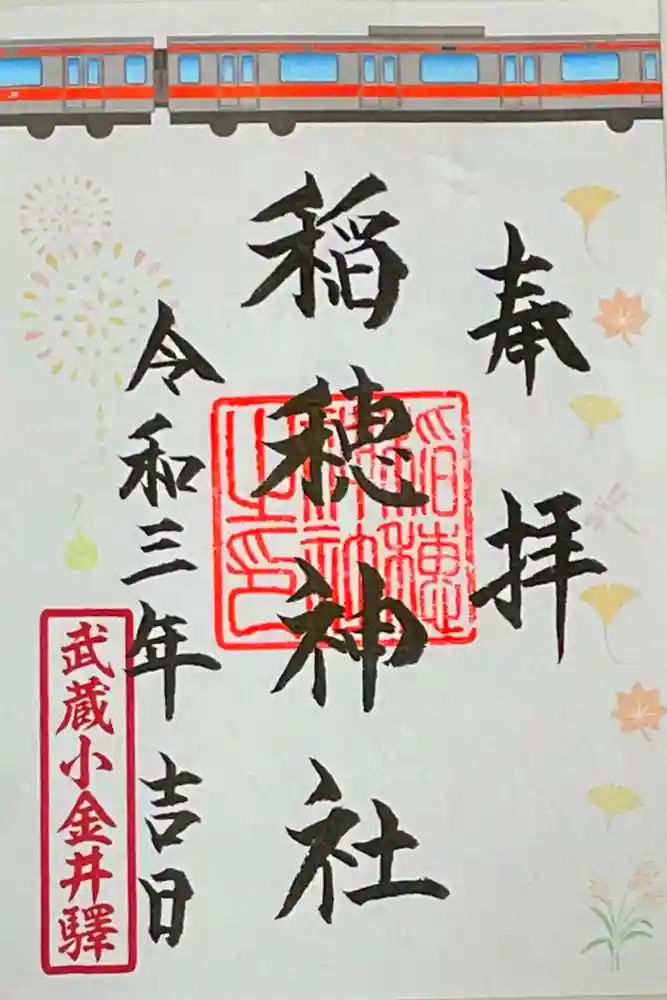 奉拝
稲穂神社
稲穂
神社
之印
令和三年吉日
武蔵小金井驛
JR